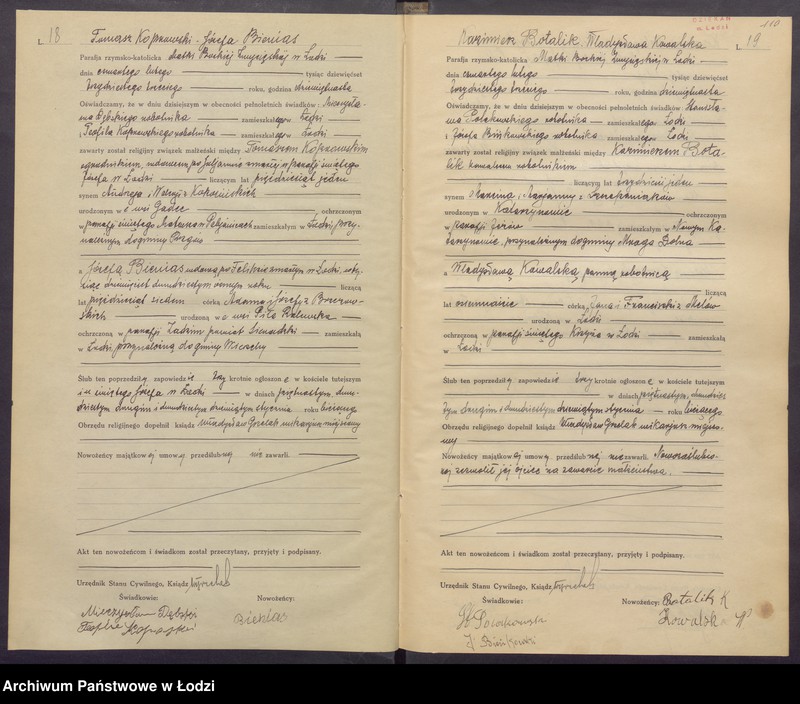 18
Tomasz Kopczowski - Józefa Bienias
Parafja rzymsko-katolicka Matki Boskiej Zwycięskiej w Łodzi
dnia czwartego lutego tysiąc dziewięćset
trzydziestego trzeciego roku, godzina dziewiętnasta
Oświadczamy, że w dniu dzisiejszym w obecności pełnoletnich świadków: Mieczysła-
wa Dębskiego robotnika zamieszkałego w Łodzi
i Teofila Kopczowskiego robotnika zamieszkałego w Łodzi
zawarty został religijny związek małżeński między Tomaszem Kopczowskim
ogrodnikiem, wdowcem po Juljannie zmarłej w parafji świętego
Józefa w Łodzi liczącym lat pięćdziesiąt jeden
synem Andrzeja i
urodzonym w wsi Gadec ochrzczonym
w parafji świętego Mateusza w Pabjanicach zamieszkałym w Łodzi, przy-
należnym do gminy
a Józefą Bienias wdową po Feliksie zmarłym w Łodzi, ty-
siąc dziewięćset dwudziestym ósmym roku
liczącą
lat pięćdziesiąt siedem córką Adama i Józefy z
urodzoną w wsi Piła
ochrzczoną w parafji Zadzim powiat Sieradzki zamieszkałą
w Łodzi, przynależną do gminy Wierzchy
Ślub ten poprzedziły zapowiedzie trzy krotnie ogłoszone w kościele tutejszym
i w świętego Józefa w Łodzi w dniach piętnastym, dwu-
dziestym drugim i dwudziestym dziewiątym stycznia roku bieżącego
Obrzędu religijnego dopełnił ksiądz Władysław Gorzelak wikarjusz miejscowy
Nowożeńcy majątkowej umowy przedślubnej nie zawarli.
Akt ten nowożeńcom i świadkom został przeczytany, przyjęty i podpisany.
Urzędnik Stanu Cywilnego, Ksiądz
Świadkowie: Nowożeńcy:
Mieczysław Dębski
Bienias
110
19
Kazimierz Botalik, Władysława Kowalska
Parafja rzymsko-katolicka Matki Boskiej Zwycięskiej w Łodzi
dnia czwartego lutego tysiąc dziewięćset
trzydziestego trzeciego roku, godzina dziewiętnasta
Oświadczamy, że w dniu dzisiejszym w obecności pełnoletnich świadków: Stanisła-
wa robotnika zamieszkałego w Łodzi
i Józefa Bińkowskiego robotnika zamieszkałego w Łodzi
zawarty został religijny związek małżeński między Kazimierzem Bota-
lik kawalerem robotnikiem
liczącym lat trzydzieści jeden
synem Marcina i Marjanny z
urodzonym w Katarzynowie ochrzczonym
w parafji zamieszkałym w Nowym Ka-
tarzynowie, przynależnym do gminy Mroga Dolna
a Władysławą Kowalską, panną robotnicą
liczącą
lat osiemnaście córką Jana i Franciszki z
urodzoną w Łodzi
ochrzczoną w parafji świętego Krzyża w Łodzi zamieszkałą
w Łodzi
Ślub ten poprzedziły zapowiedzie trzy krotnie ogłoszone w kościele tutejszym
w dniach piętnastym, dwudzies-
tym drugim i dwudziestym dziewiątym stycznia roku bieżącego.
Obrzędu religijnego dopełnił ksiądz Władysław Gorzelak wikarjusz miejsco-
wy
Nowożeńcy majątkowej umowy przedślubnej nie zawarli. Nowozaślubio-
nej zezwolił jej ojciec na zawarcie małżeństwa.
Akt ten nowożeńcom i świadkom został przeczytany, przyjęty i podpisany.
Urzędnik Stanu Cywilnego, Ksiądz
Świadkowie: Nowożeńcy: Botalik K
Kowalska W
J. Bińkowski
Archiwum Państwowe w Łodzi